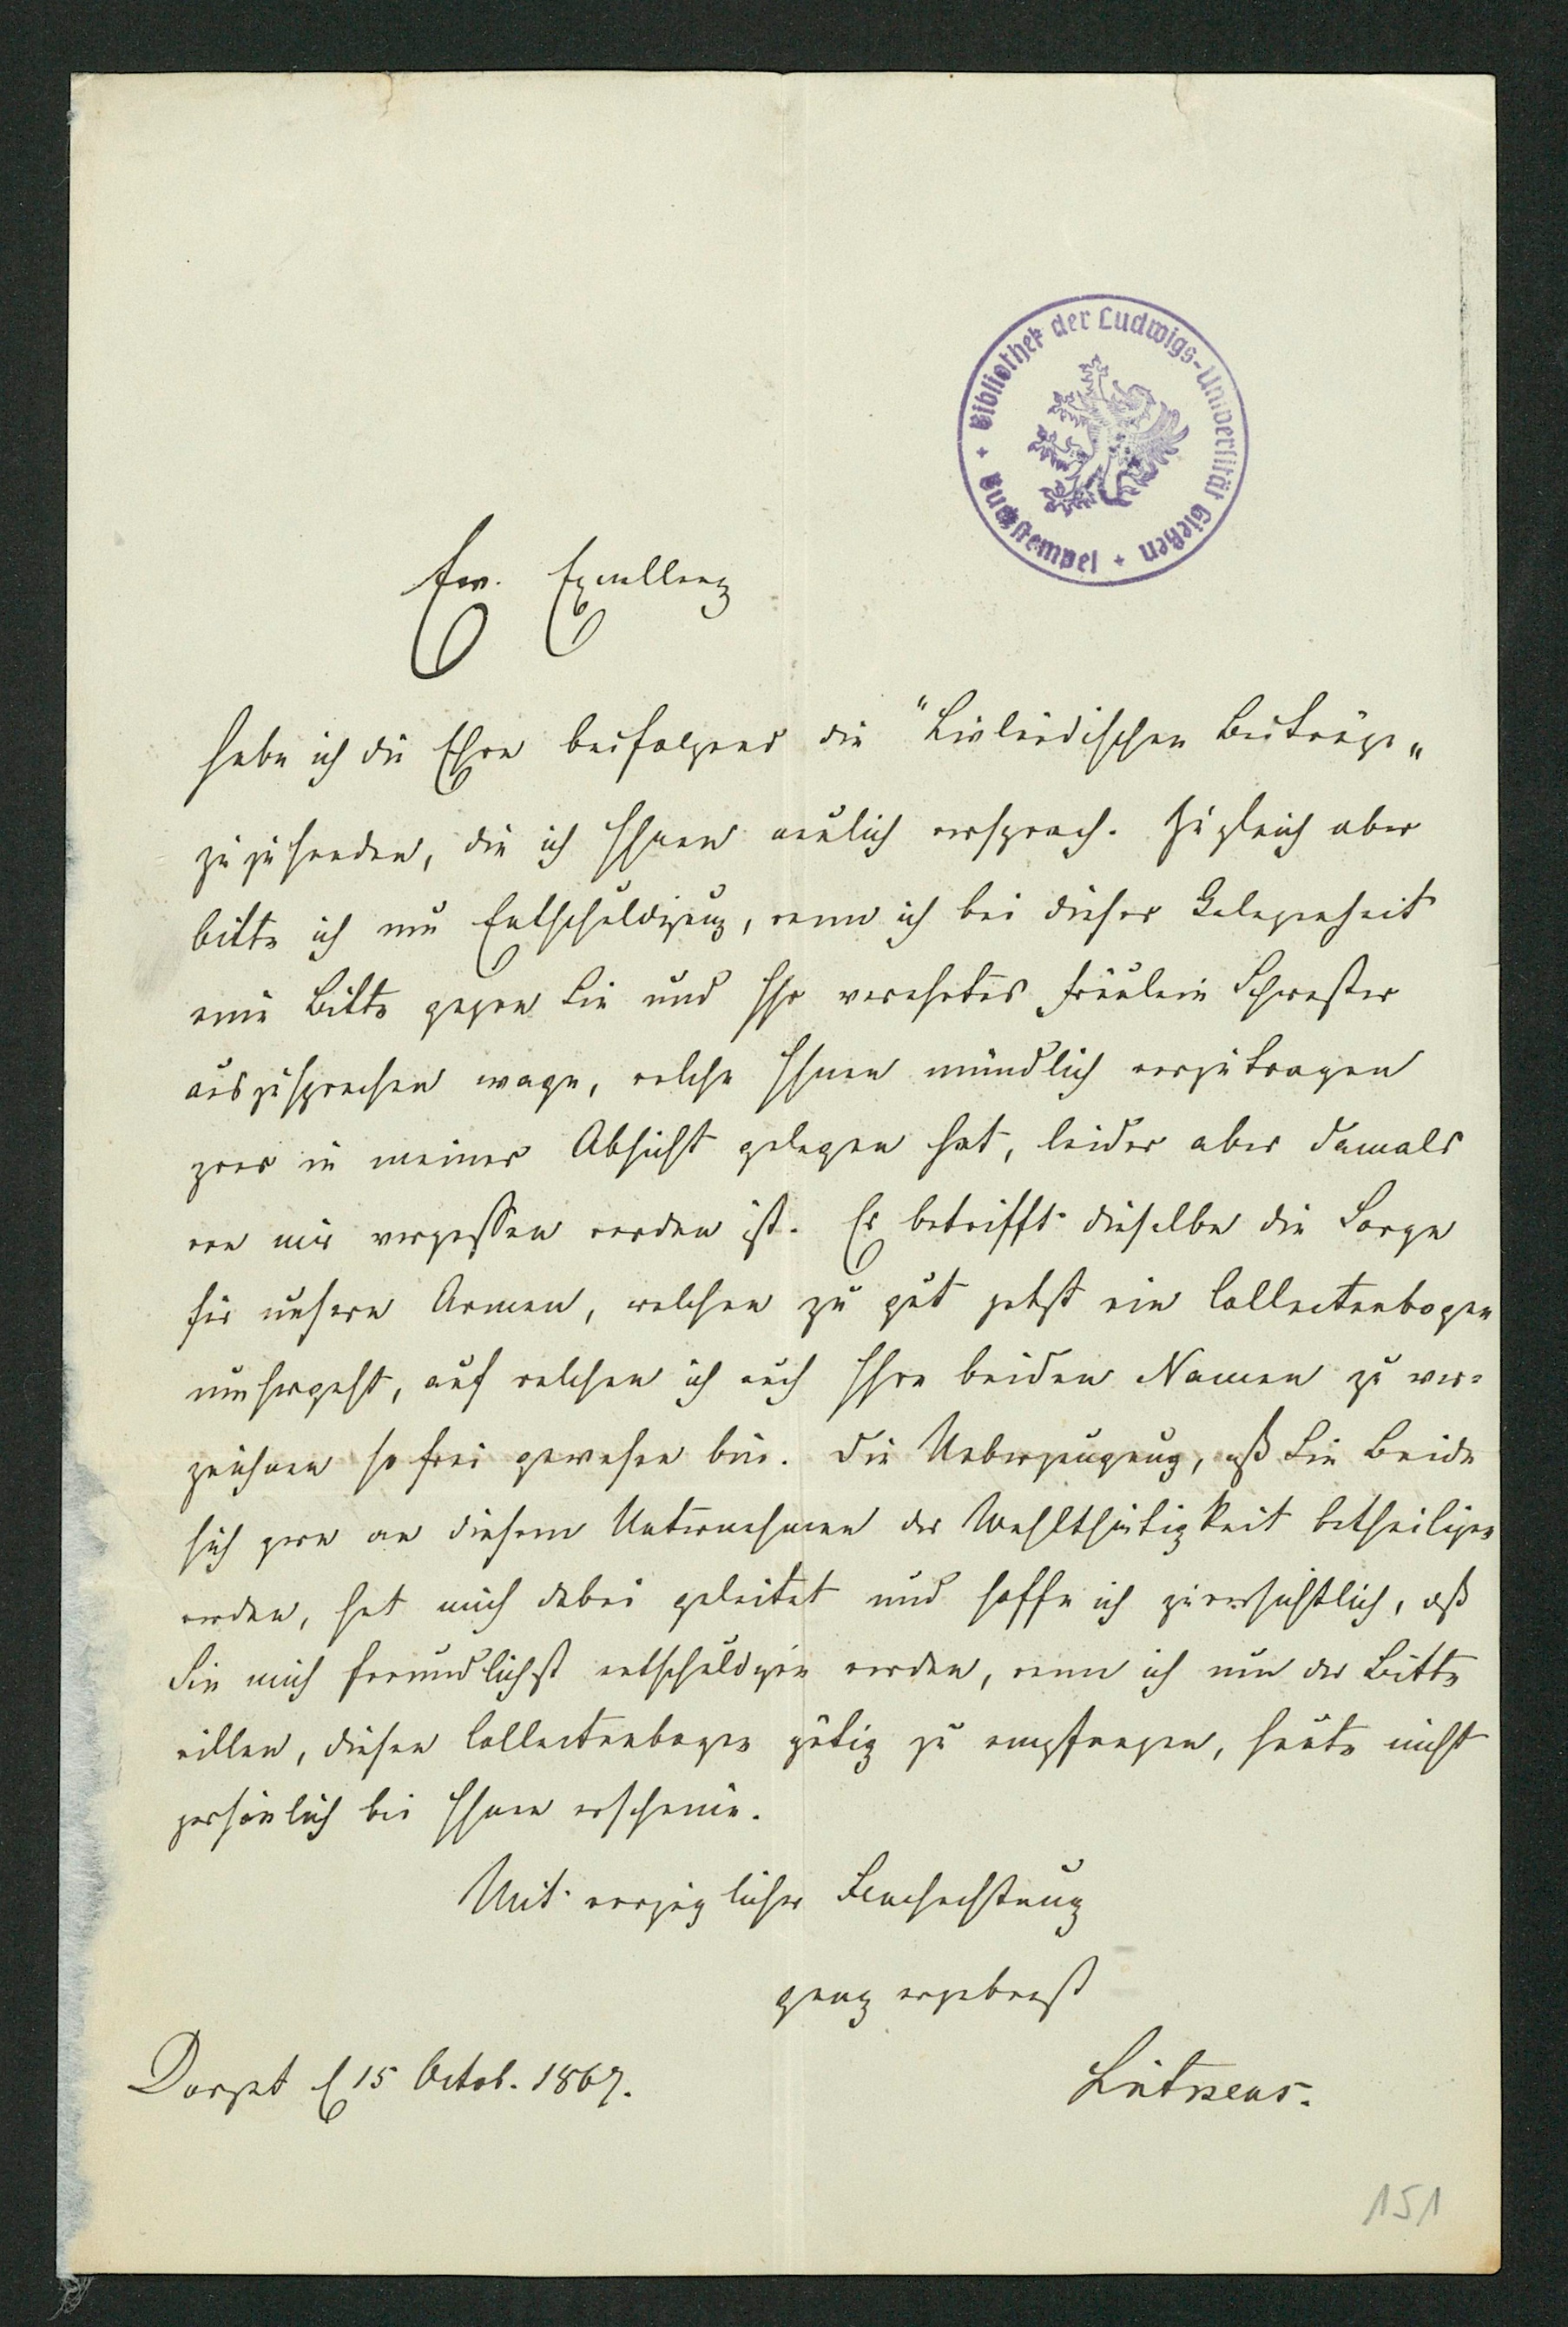 Bibliothek der Ludwigs-Universität Gießen + Buchstempel +
Ew. Excellenz
habe ich die Ehre beifolgend die "Livländischen Beiträge„
zuzusenden, die ich Ihnen neulich versprach. Zugleich aber
bitte ich um Entschuldigung, wenn ich bei dieser Gelegenheit
eine Bitte gegen Sie und Ihr verehrtes Fräulein Schwester
auszusprechen wage, welche Ihnen mündlich vorzutragen
zwar in meiner Absicht gelegen hat, leider aber damals
von mir vergessen worden ist. Es betrifft dieselbe die Sorge
für unsere Armen, welchen zu gut jetzt ein Collectenbogen
umhergeht, auf welchen ich auch Ihre beiden Namen zu ver-
zeichnen so frei gewesen bin. Die Ueberzeugung, daß Sie Beide
sich gern an diesem Unternehmen der Wohlthätigkeit betheiligen
werden, hat mich dabei geleitet und hoffe ich zuversichtlich, daß
Sie mich freundlichst entschuldigen werden, wenn ich um der Bitte
willen, diesen Collectenbogen gütig zu empfangen, heute nicht
persönlich bei Ihnen erscheine.
Mit vorzüglicher Hochachtung
ganz ergebenst
Dorpat d 15 Octob. 1867.
Lütkens.
151